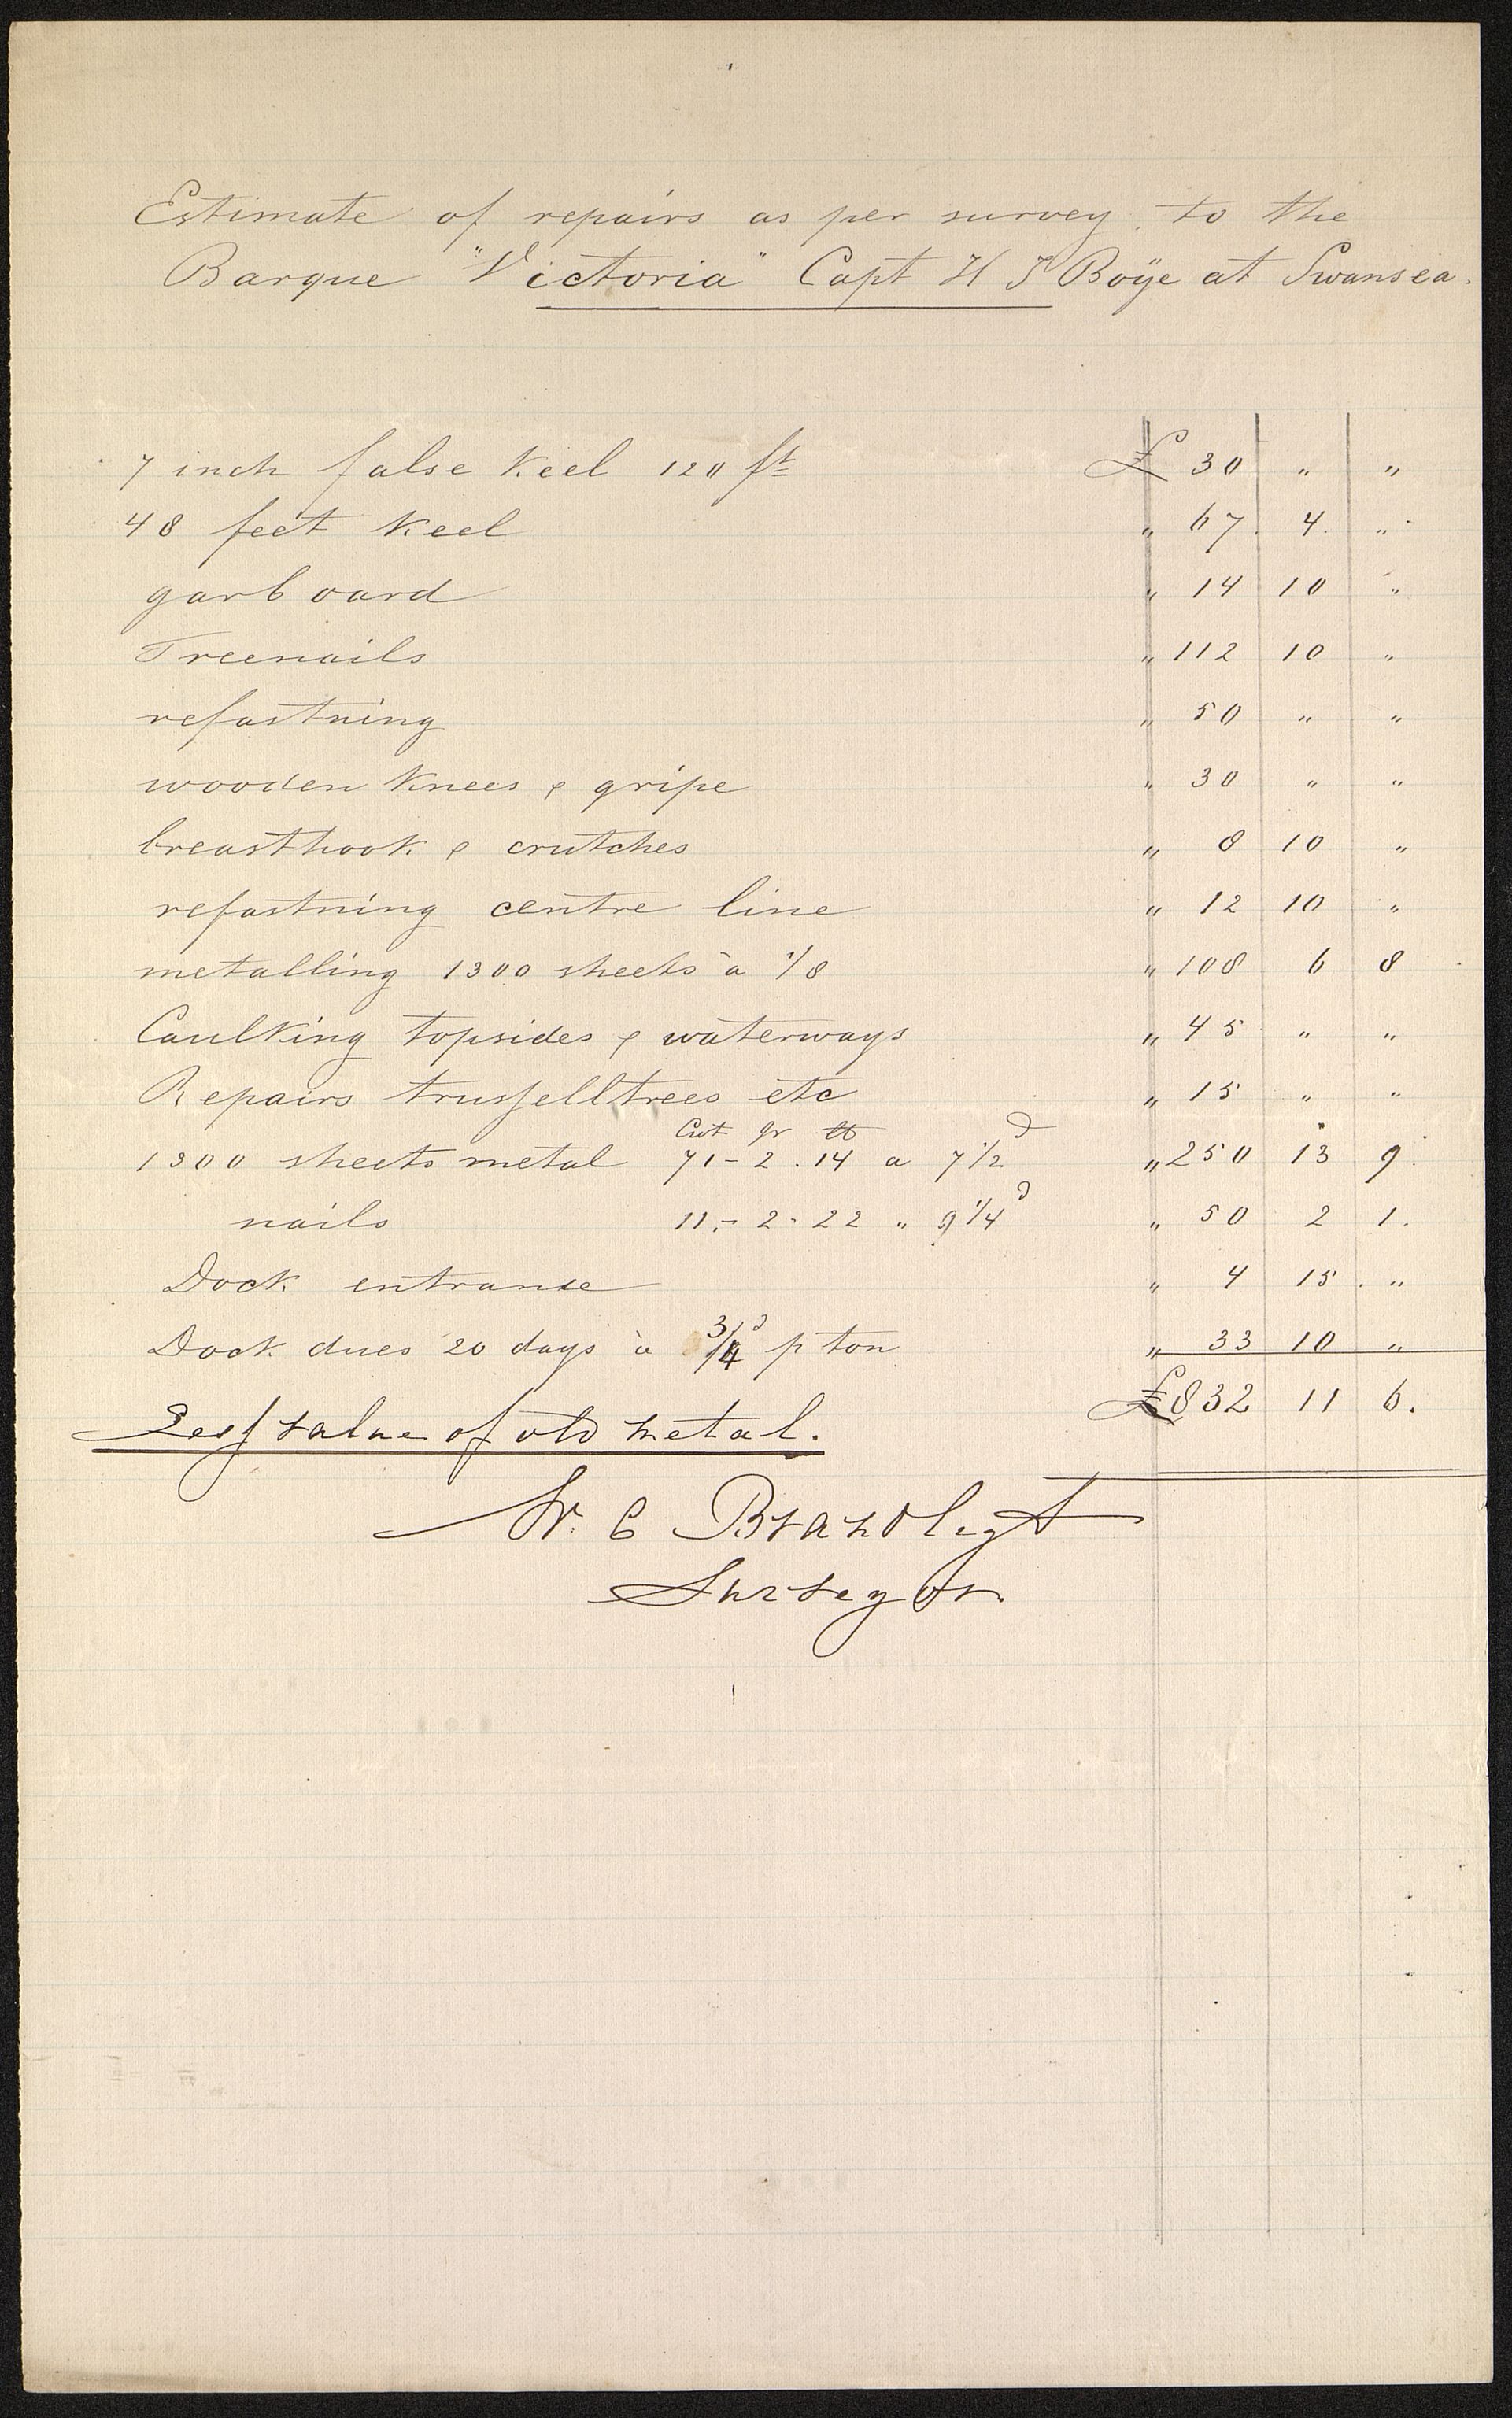 Estimate of repairs as per survey, to the
Barque "Victoria" Capt H J Boÿe at Swansea.
7 inch false Keel 120 ft £ 30 " "
48 feet Keel " 67. 4. "
garboard " 14 10 "
Treenails " 112 10 "
refastning " 50 " "
wooden Knees & gripe " 30 " "
breasthook & crutches " 8 10 "
refastning centre line " 12 10 "
metalling 1300 sheets a 1/8 " 108 6 8
Caulking topsides & waterways " 45 " "
Repairs trusselltrees etc " 15 " "
Cwt Qr lb d
1300 sheets metal 71-2.14 a 7 1/2 " 250 13 9
nails 11.-2-22 " 9 1/4 d " 50 2 1.
Dock entranse " 4 15. "
Dock dues 20 days à 3/4 d p ton " 33 10 "
£832 11 6.
Less value of old metal.
W. C Brandlegt
Surveyor.